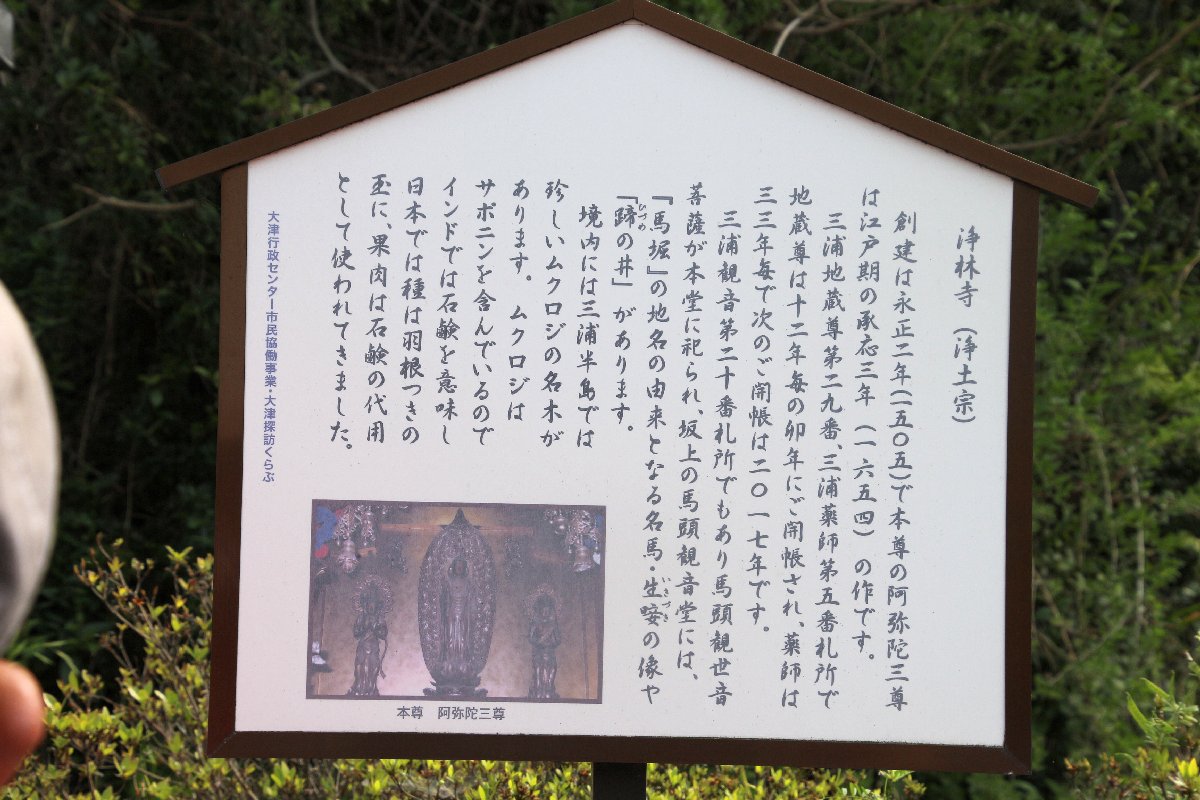 浄林寺（浄土宗）
創建は永正二年(一五〇五)で本尊の阿弥陀三尊
は江戸期の承応三年（一六五四）の作です。
三浦地蔵尊第二九番、三浦薬師第五番札所で
地蔵尊は十二年毎の卯年にご開帳され、薬師は
三三年毎で次のご開帳は二〇一七年です。
三浦観音第二十番札所でもあり馬頭観世音
菩薩が本堂に祀られ、坂上の馬頭観音堂には、
『馬堀』の地名の由来となる名馬・生唼の像や
いきづき
「蹄の井」があります。
ひづめ
境内には三浦半島では
珍しいムクロジの名木が
あります。ムクロジは
サポニンを含んでいるので
インドでは石鹸を意味し
日本では種は羽根つきの
玉に、果肉は石鹸の代用
として使われてきました。
大津行政センター市民協働事業・大津探訪くらぶ
本尊　阿弥陀三尊